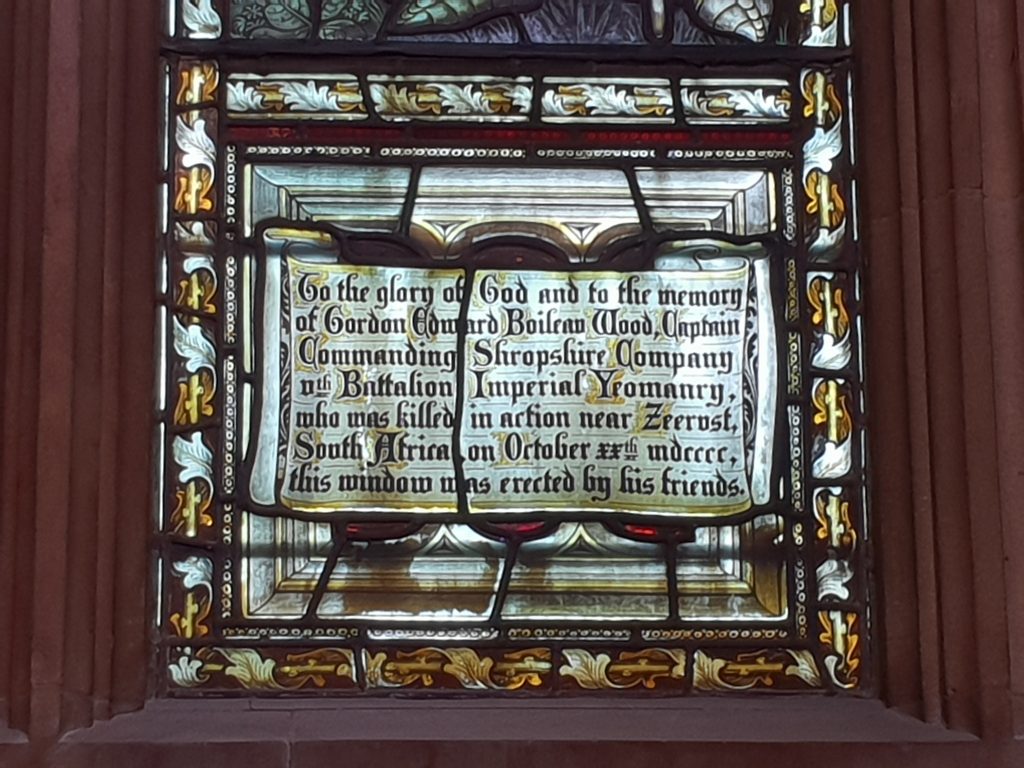 To the glory of God and to the memory
of Gordon Edward Boileau Wood, Captain
Commanding Shropshire Company
vth Battalion Imperial Yeomanry,
who was killed in action near Zeerust,
South Africa, on October xxth mdcccc,
this window was erected by his friends.